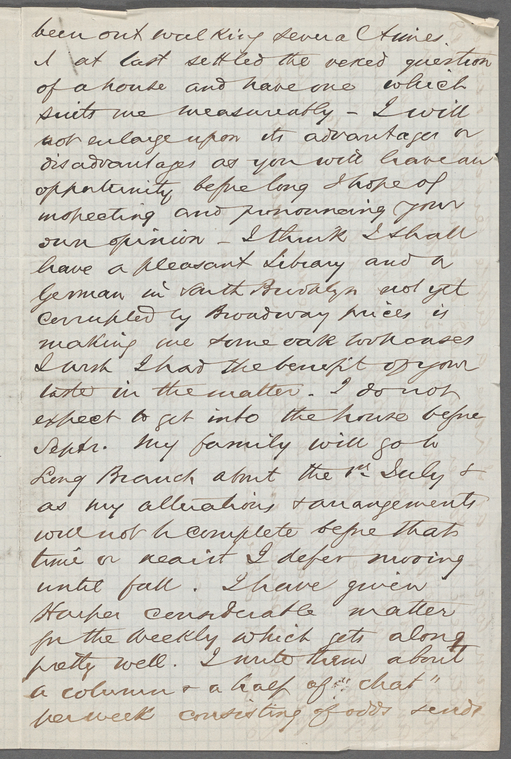 been out walking several times.
I at last settled the vexed question
of a house and have one which
suits me measureably - I will
not enlarge upon its advantages or
disadvantages as you will have an
opportunity before long I hope of
inspecting and pronouncing your
own opinion - I think I shall
have a pleasant Library and a
German in South Brooklyn not yet
corrupted by Broadway prices is
making me some oak bookcases
I wish I had the benefit of your
taste in the matter. I do not
expect to get into the house before
Septr. My family will go to
Long Branch about the 1st July &
as my alterations & arrangements
will not be complete before that
time or near it I defer moving
until fall. I have given
Harper considerable matter
for the Weekly which gets along
pretty well. I write them about
a column & a half of "chat"
per week consisting of odds & ends